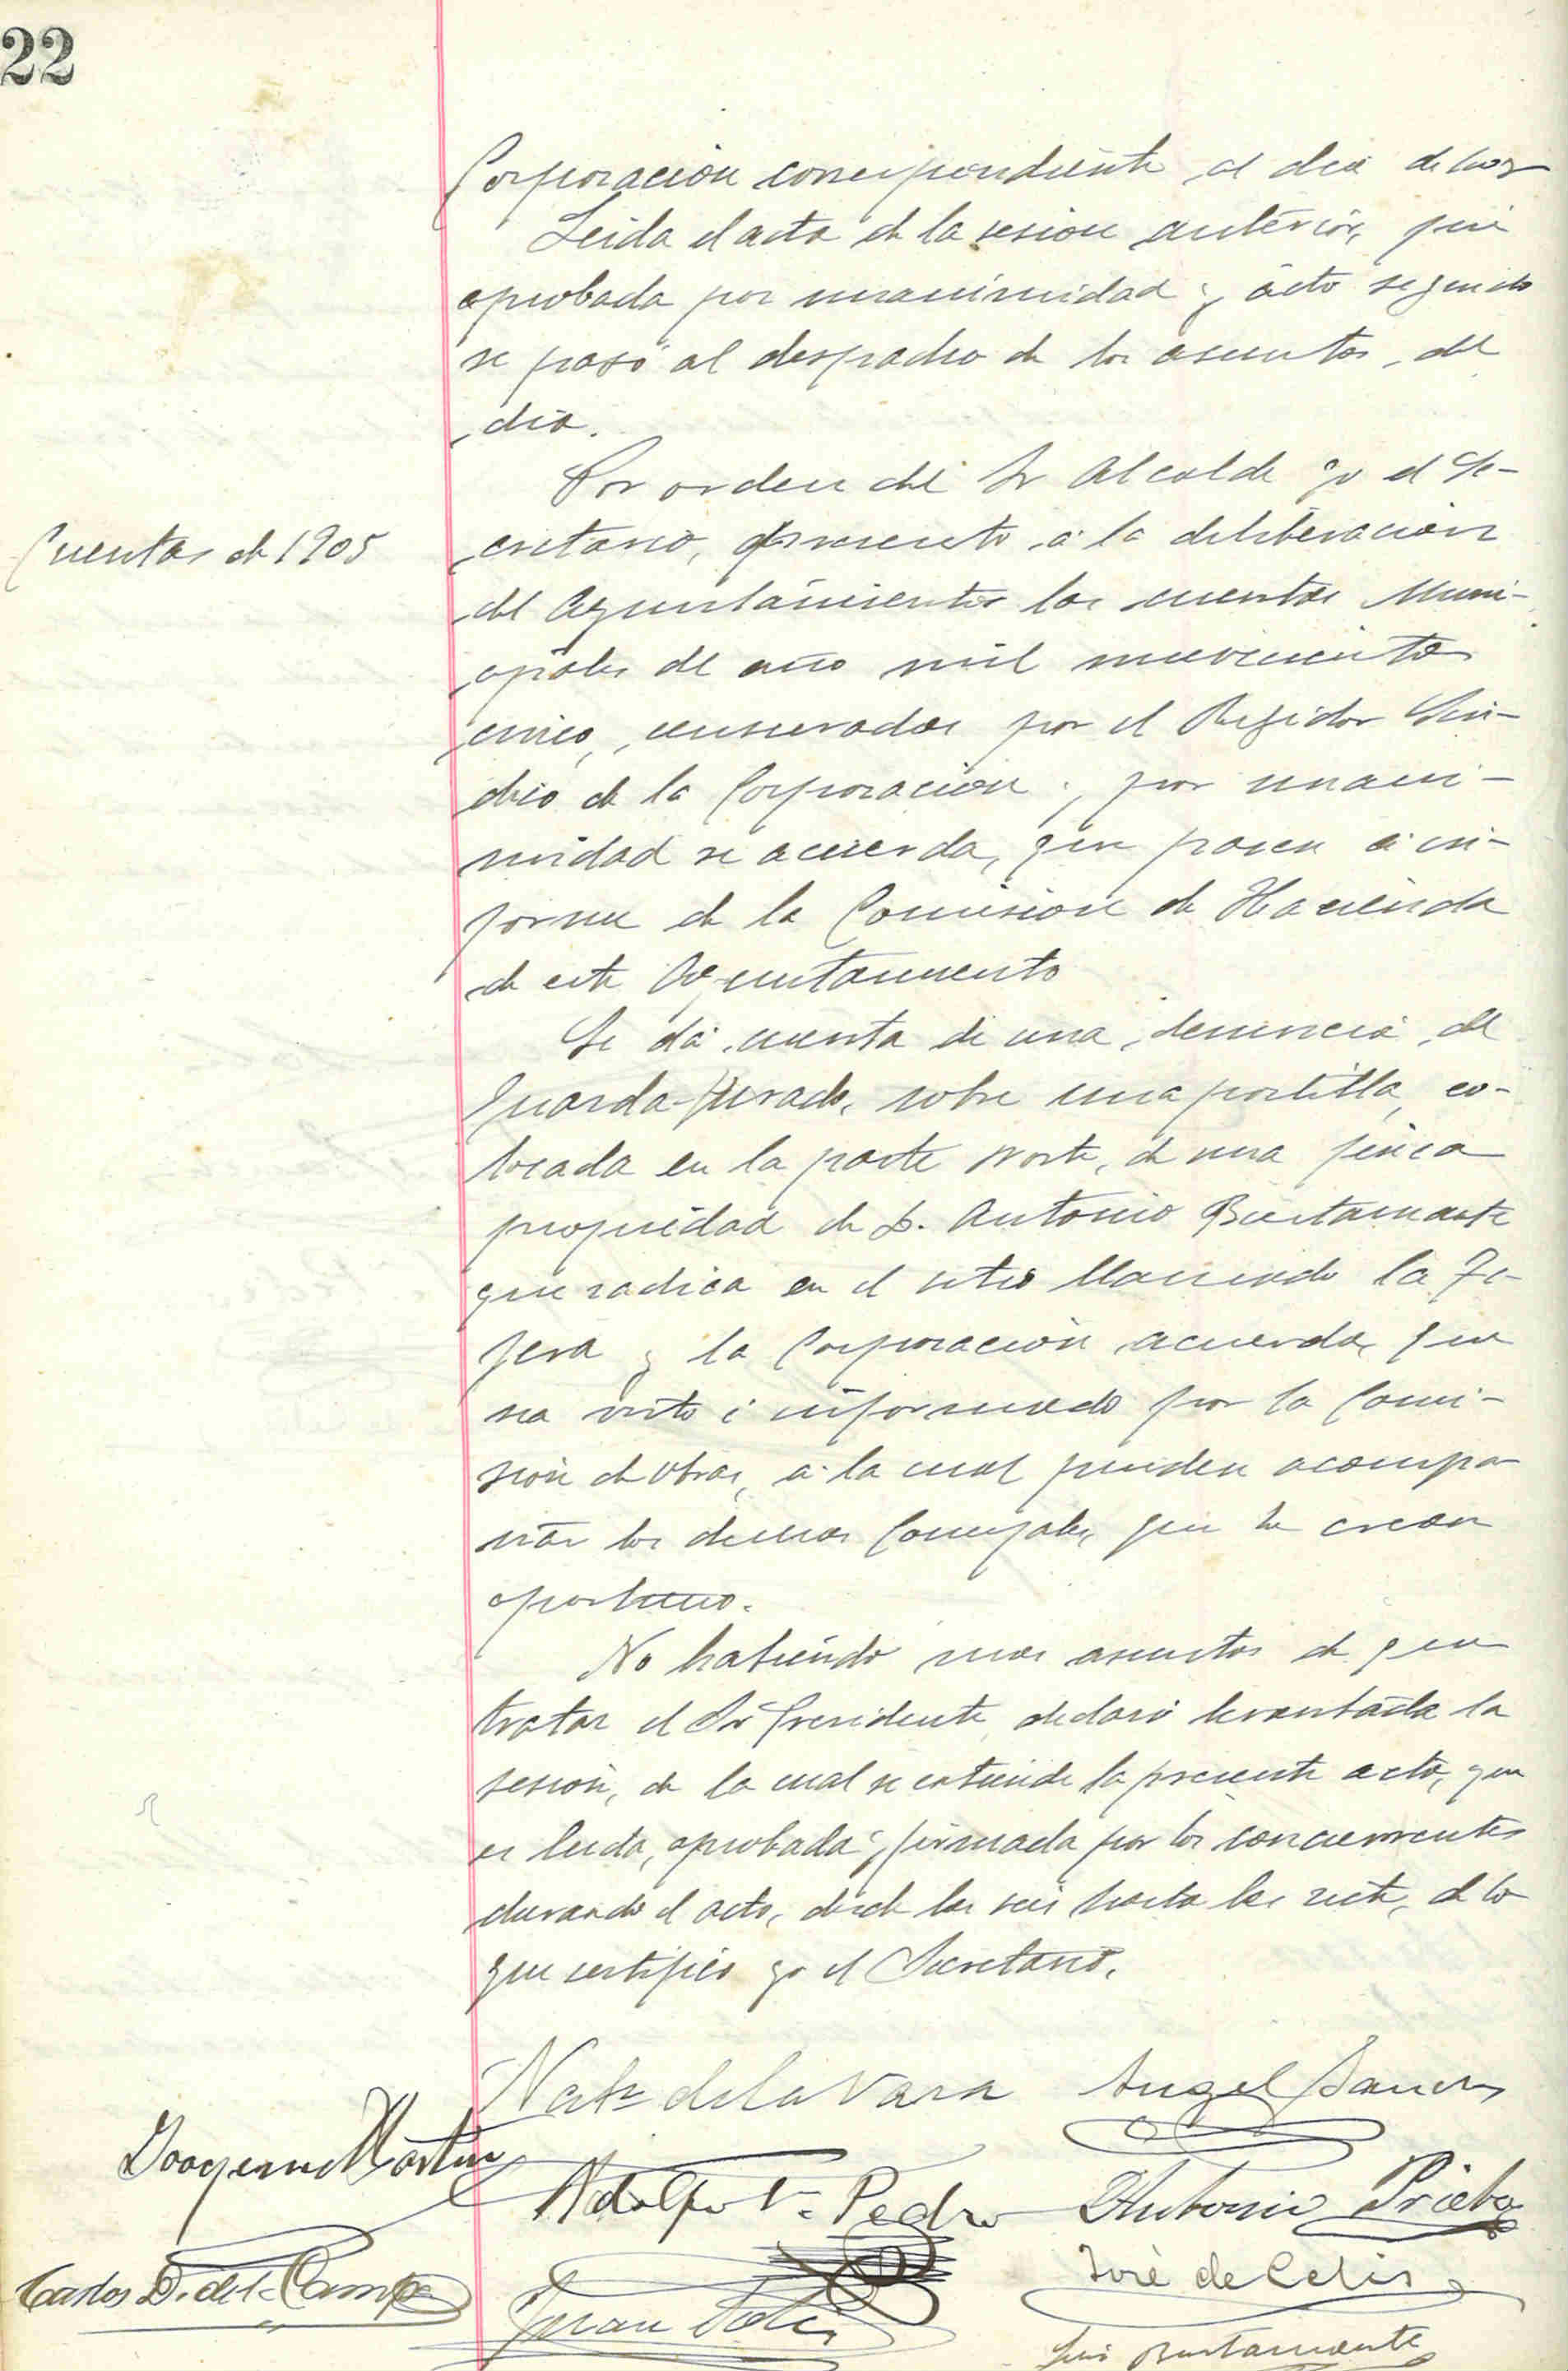 22
Corporación correspondiente al dia de hoy
Leida el acta de la sesion anterior, fué
aprobada por unanimidad y acto seguido
se pasó al despacho de los asuntos del
dia.
Por orden del Sr Alcalde yo el Se-
Cuentas de 1905
cretario, presento á la deliberación
del Ayuntamiento las cuentas Muni-
cipales del año mil novecientos
cinco, censuradas por el Regidor Sin-
dico de la Corporación y por unani-
midad se acuerda, que pasen á in-
forme de la Comision de Hacienda
de este Ayuntamiento
Se dá cuenta de una denuncia del
Guarda-Jurado, sobre una portilla co-
locada en la parte Norte, de una finca
propiedad de D. Antonio Bustamante
que radica en el sitio llamado la Te-
jera y la Corporación acuerda, que
sea visto é informado por la Comi-
sión de Obras, a la cual pueden acompa-
ñar los demas Concejales, que lo crean
oportuno.
No habiendo mas asuntos de que
tratar el Sr Presidente declaró levantada la
sesión, de la cual se extiende la presente acta, que
es leida, aprobada y firmada por los concurrentes
durando el acto, desde las seis hasta las siete, de lo
que certifico yo el Secretario.
de la Vara Angel Sanchez
Martinez
Adolfo V. Pedro Antonio Prieto
Carlos D. del Campo
José de Celis
Juan
Luis Bustamante